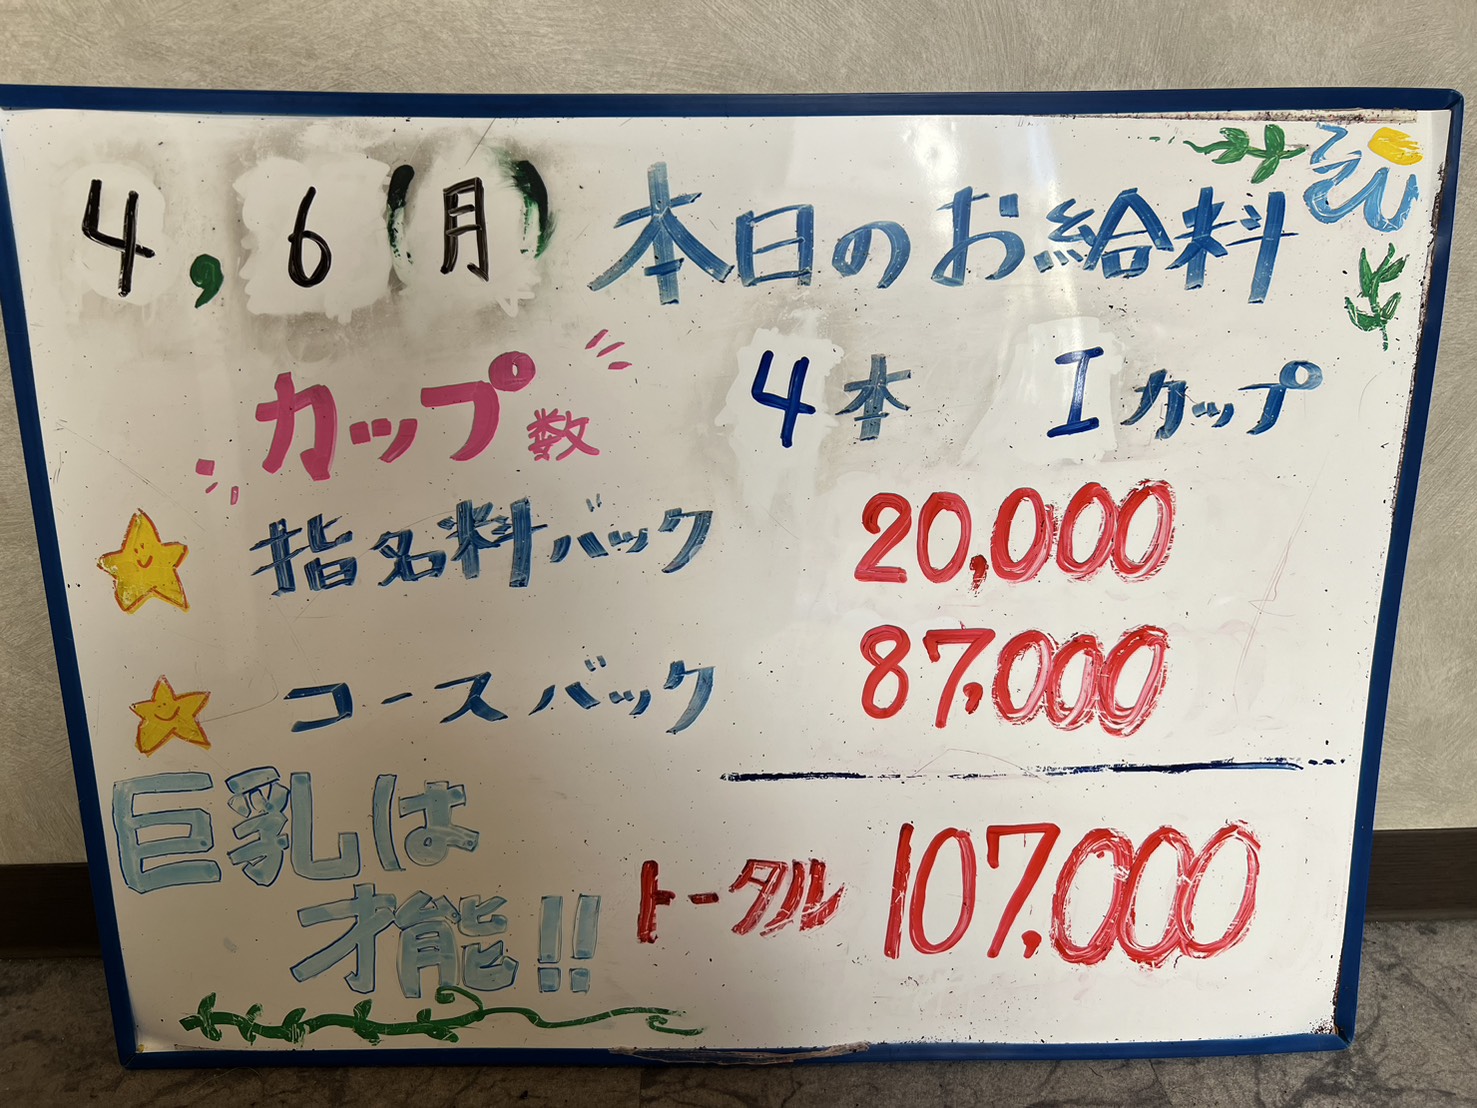 4,6(月) 本日のお給料
カップ数 4本 Iカップ
指名料バック 20,000
コースバック 87,000
巨乳は
才能!!
トータル 107,000